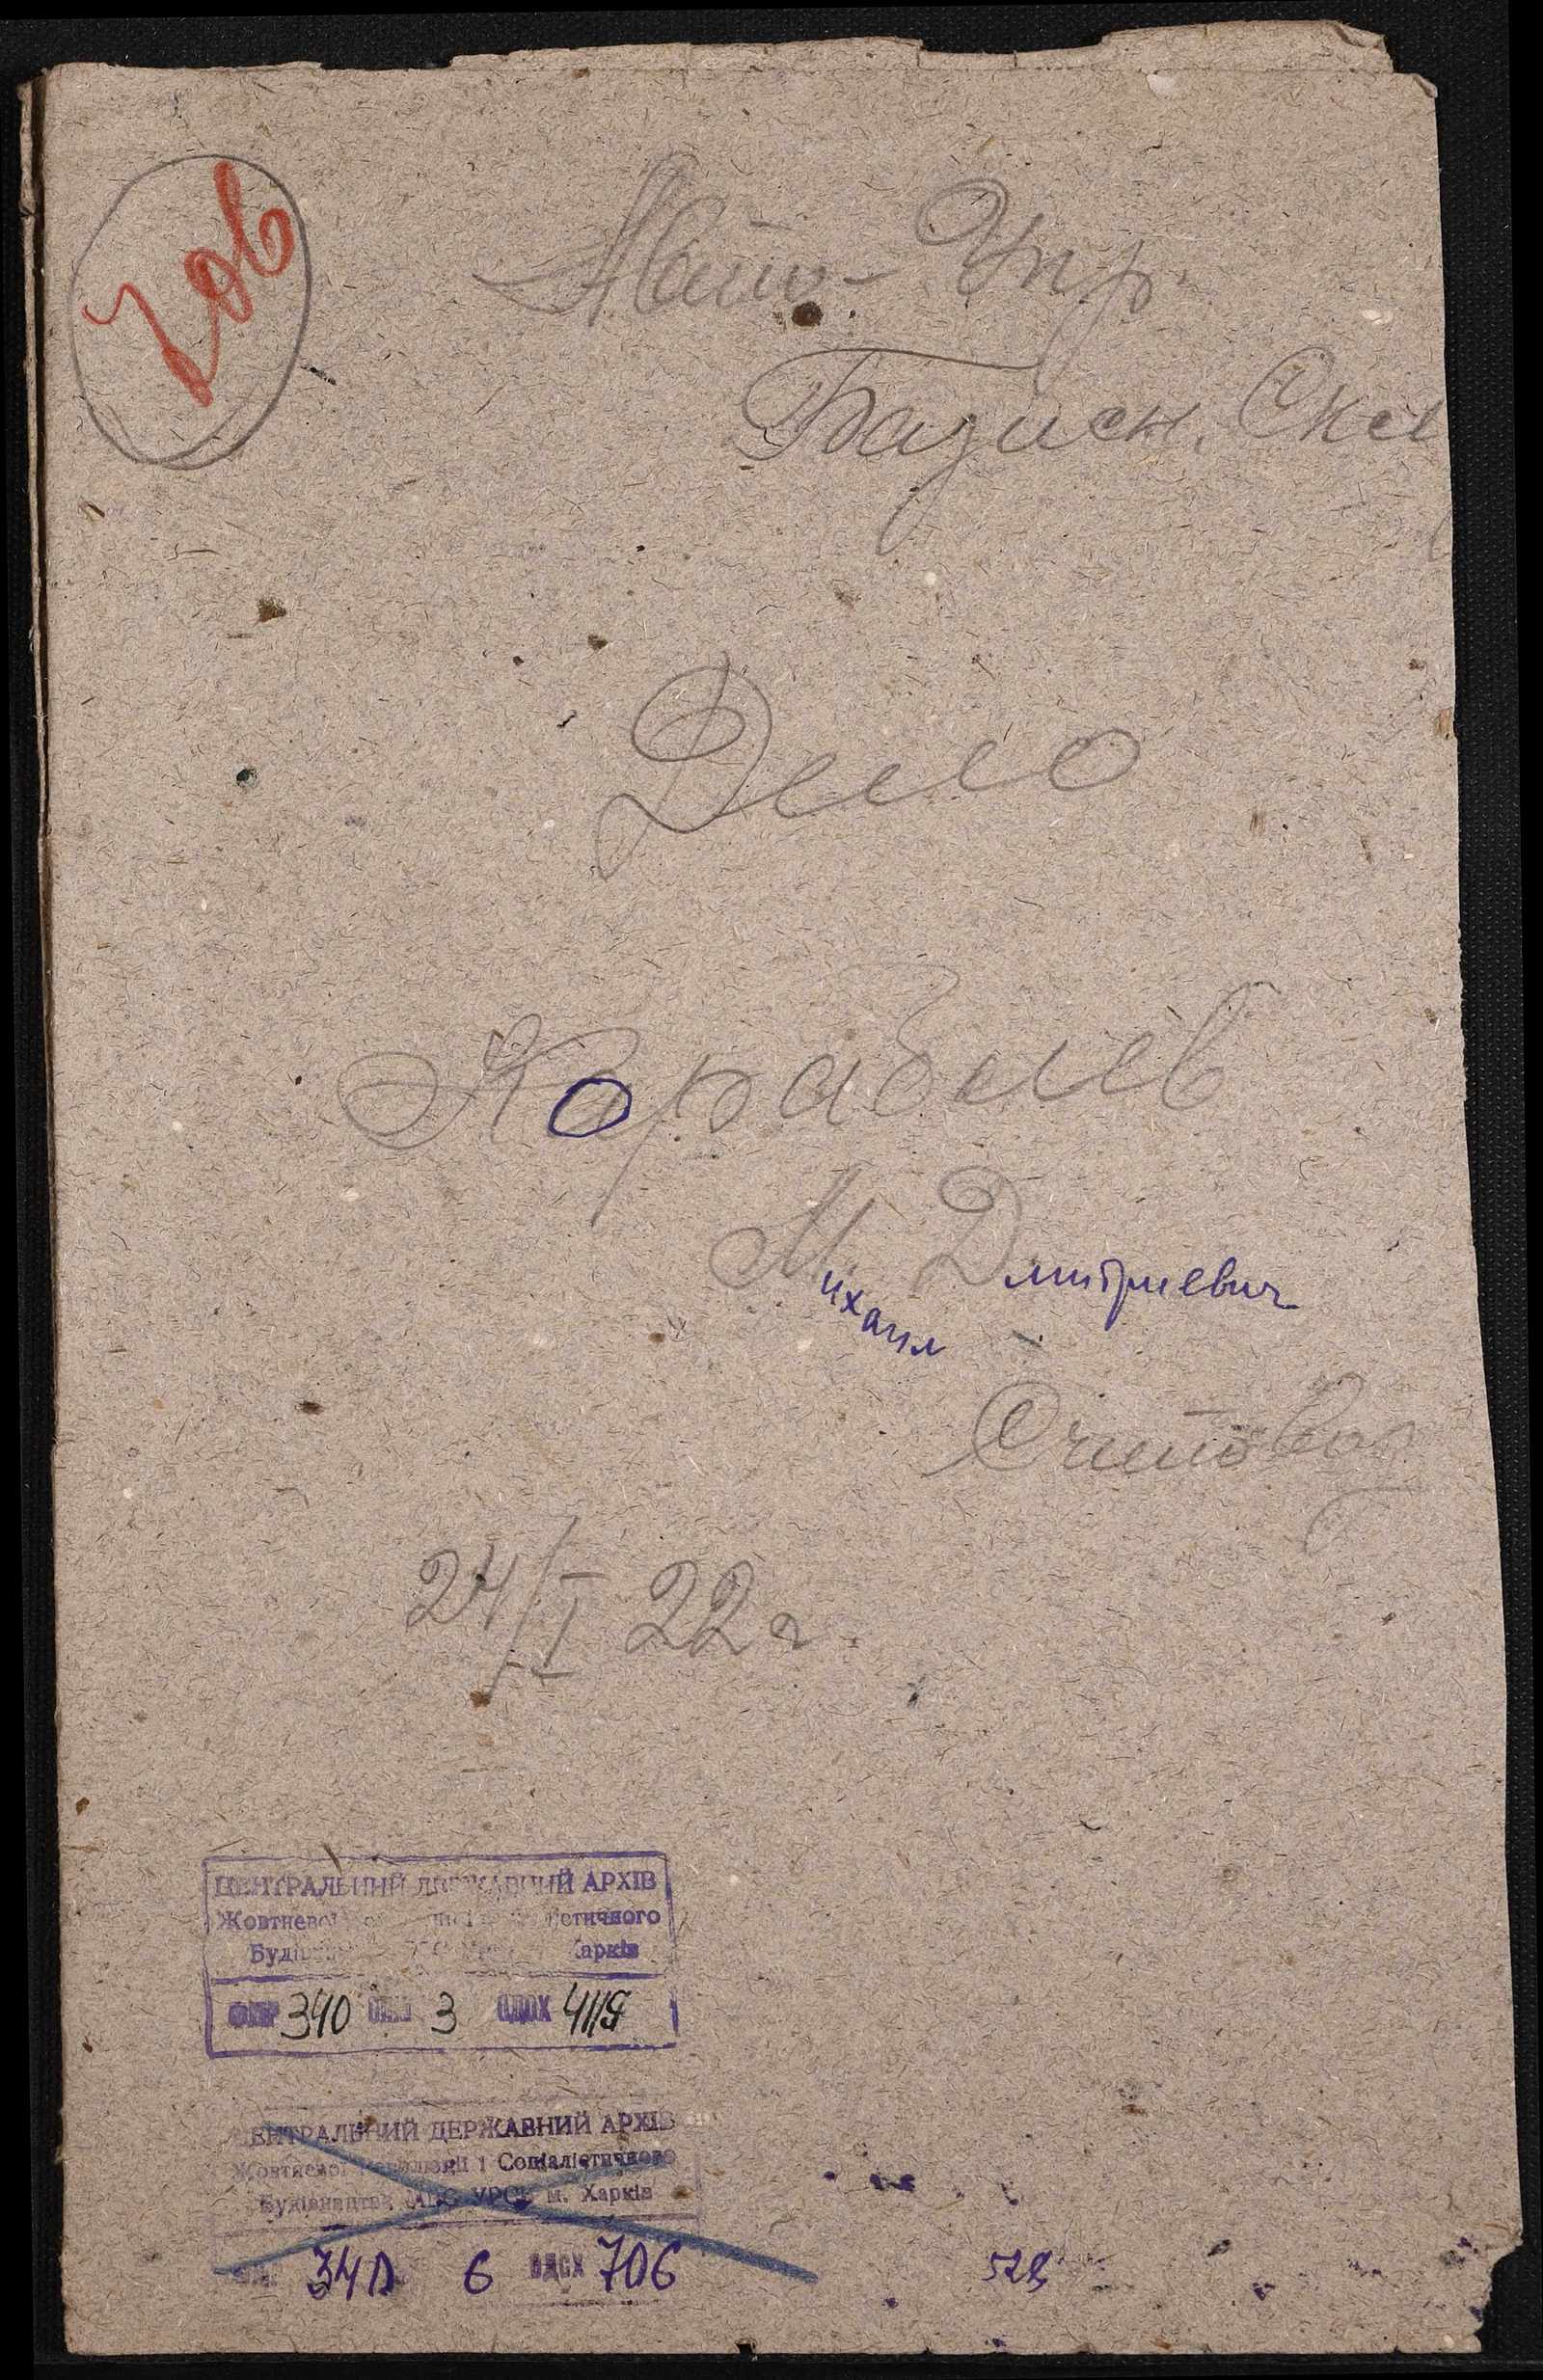 706
Авто-Упр.
Базисн. Скл
Дело
Кораблев
Михаил Дмитриевич
Счетовод
24/I 22 г.
ЦЕНТРАЛЬНИЙ ДЕРЖАВНИЙ АРХІВ
Жовтневої етичного
Харків
ФОНД 340 ОПИС 3 ОДОХ 4119
ЦЕНТРАЛЬНИЙ ДЕРЖАВНИЙ АРХІВ
Жовтневої Революції і Соціалістичного
Будівництва МВС УРСР м. Харків
340 6 ОДСХ 706
528